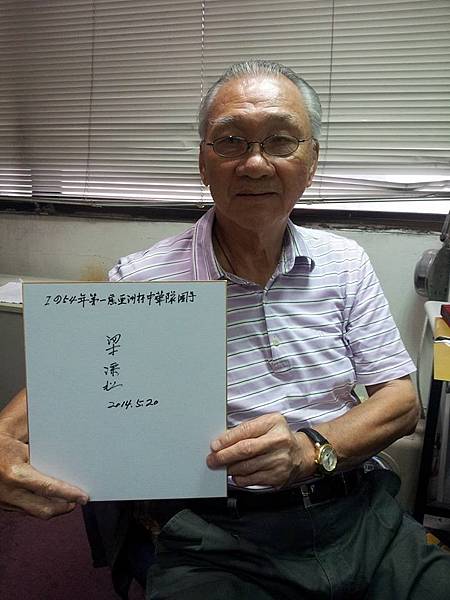 1954年第一屆亞洲杯中華隊國手
梁 松
2014.5.20